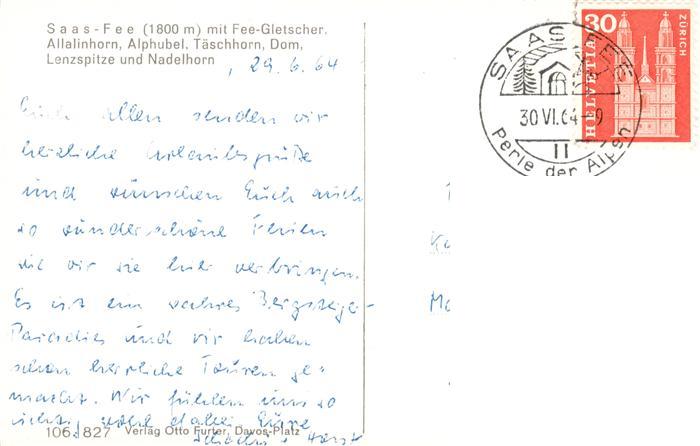 Saas-Fee (1800 m) mit Fee-Gletscher,
Allalinhorn, Alphubel, Täschhorn, Dom,
Lenzspitze und Nadelhorn
, 29.6.64
Euch allen senden wir
herzliche Urlaubsgrüße
und wünschen Euch auch
so wunderschöne Ferien
wie wir sie hier verbringen.
Es ist ein wahres Bergsteiger-
Paradies und wir haben
schon herrliche Touren ge-
macht. Wir fühlen uns so
richtig wohl dabei Eure
+ Horst
106.827 Verlag Otto Furter, Davos-Platz
SAAS-FEE
30 VI. 64-9
II
Perle der Alpen
30
HELVETIA
ZÜRICH